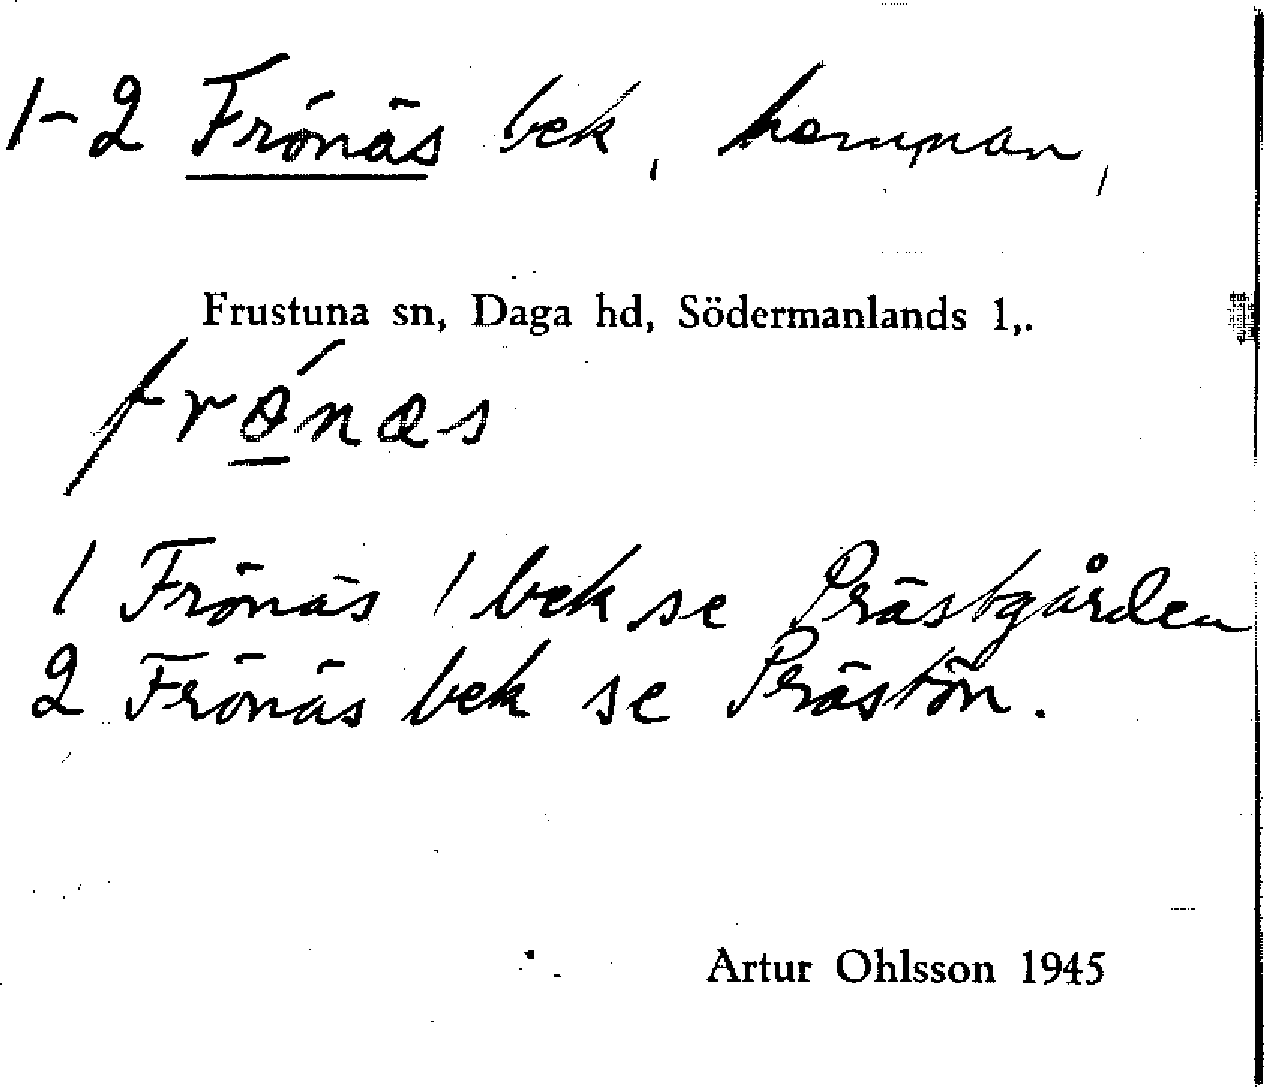 1-2 Frönäs bek, hemman,
Frustuna sn, Daga hd, Södermanlands l,.
frǿnæs
1 Frönäs 1 bek se Prästgården
2 Frönäs bek se Prästön.
Artur Ohlsson 1945